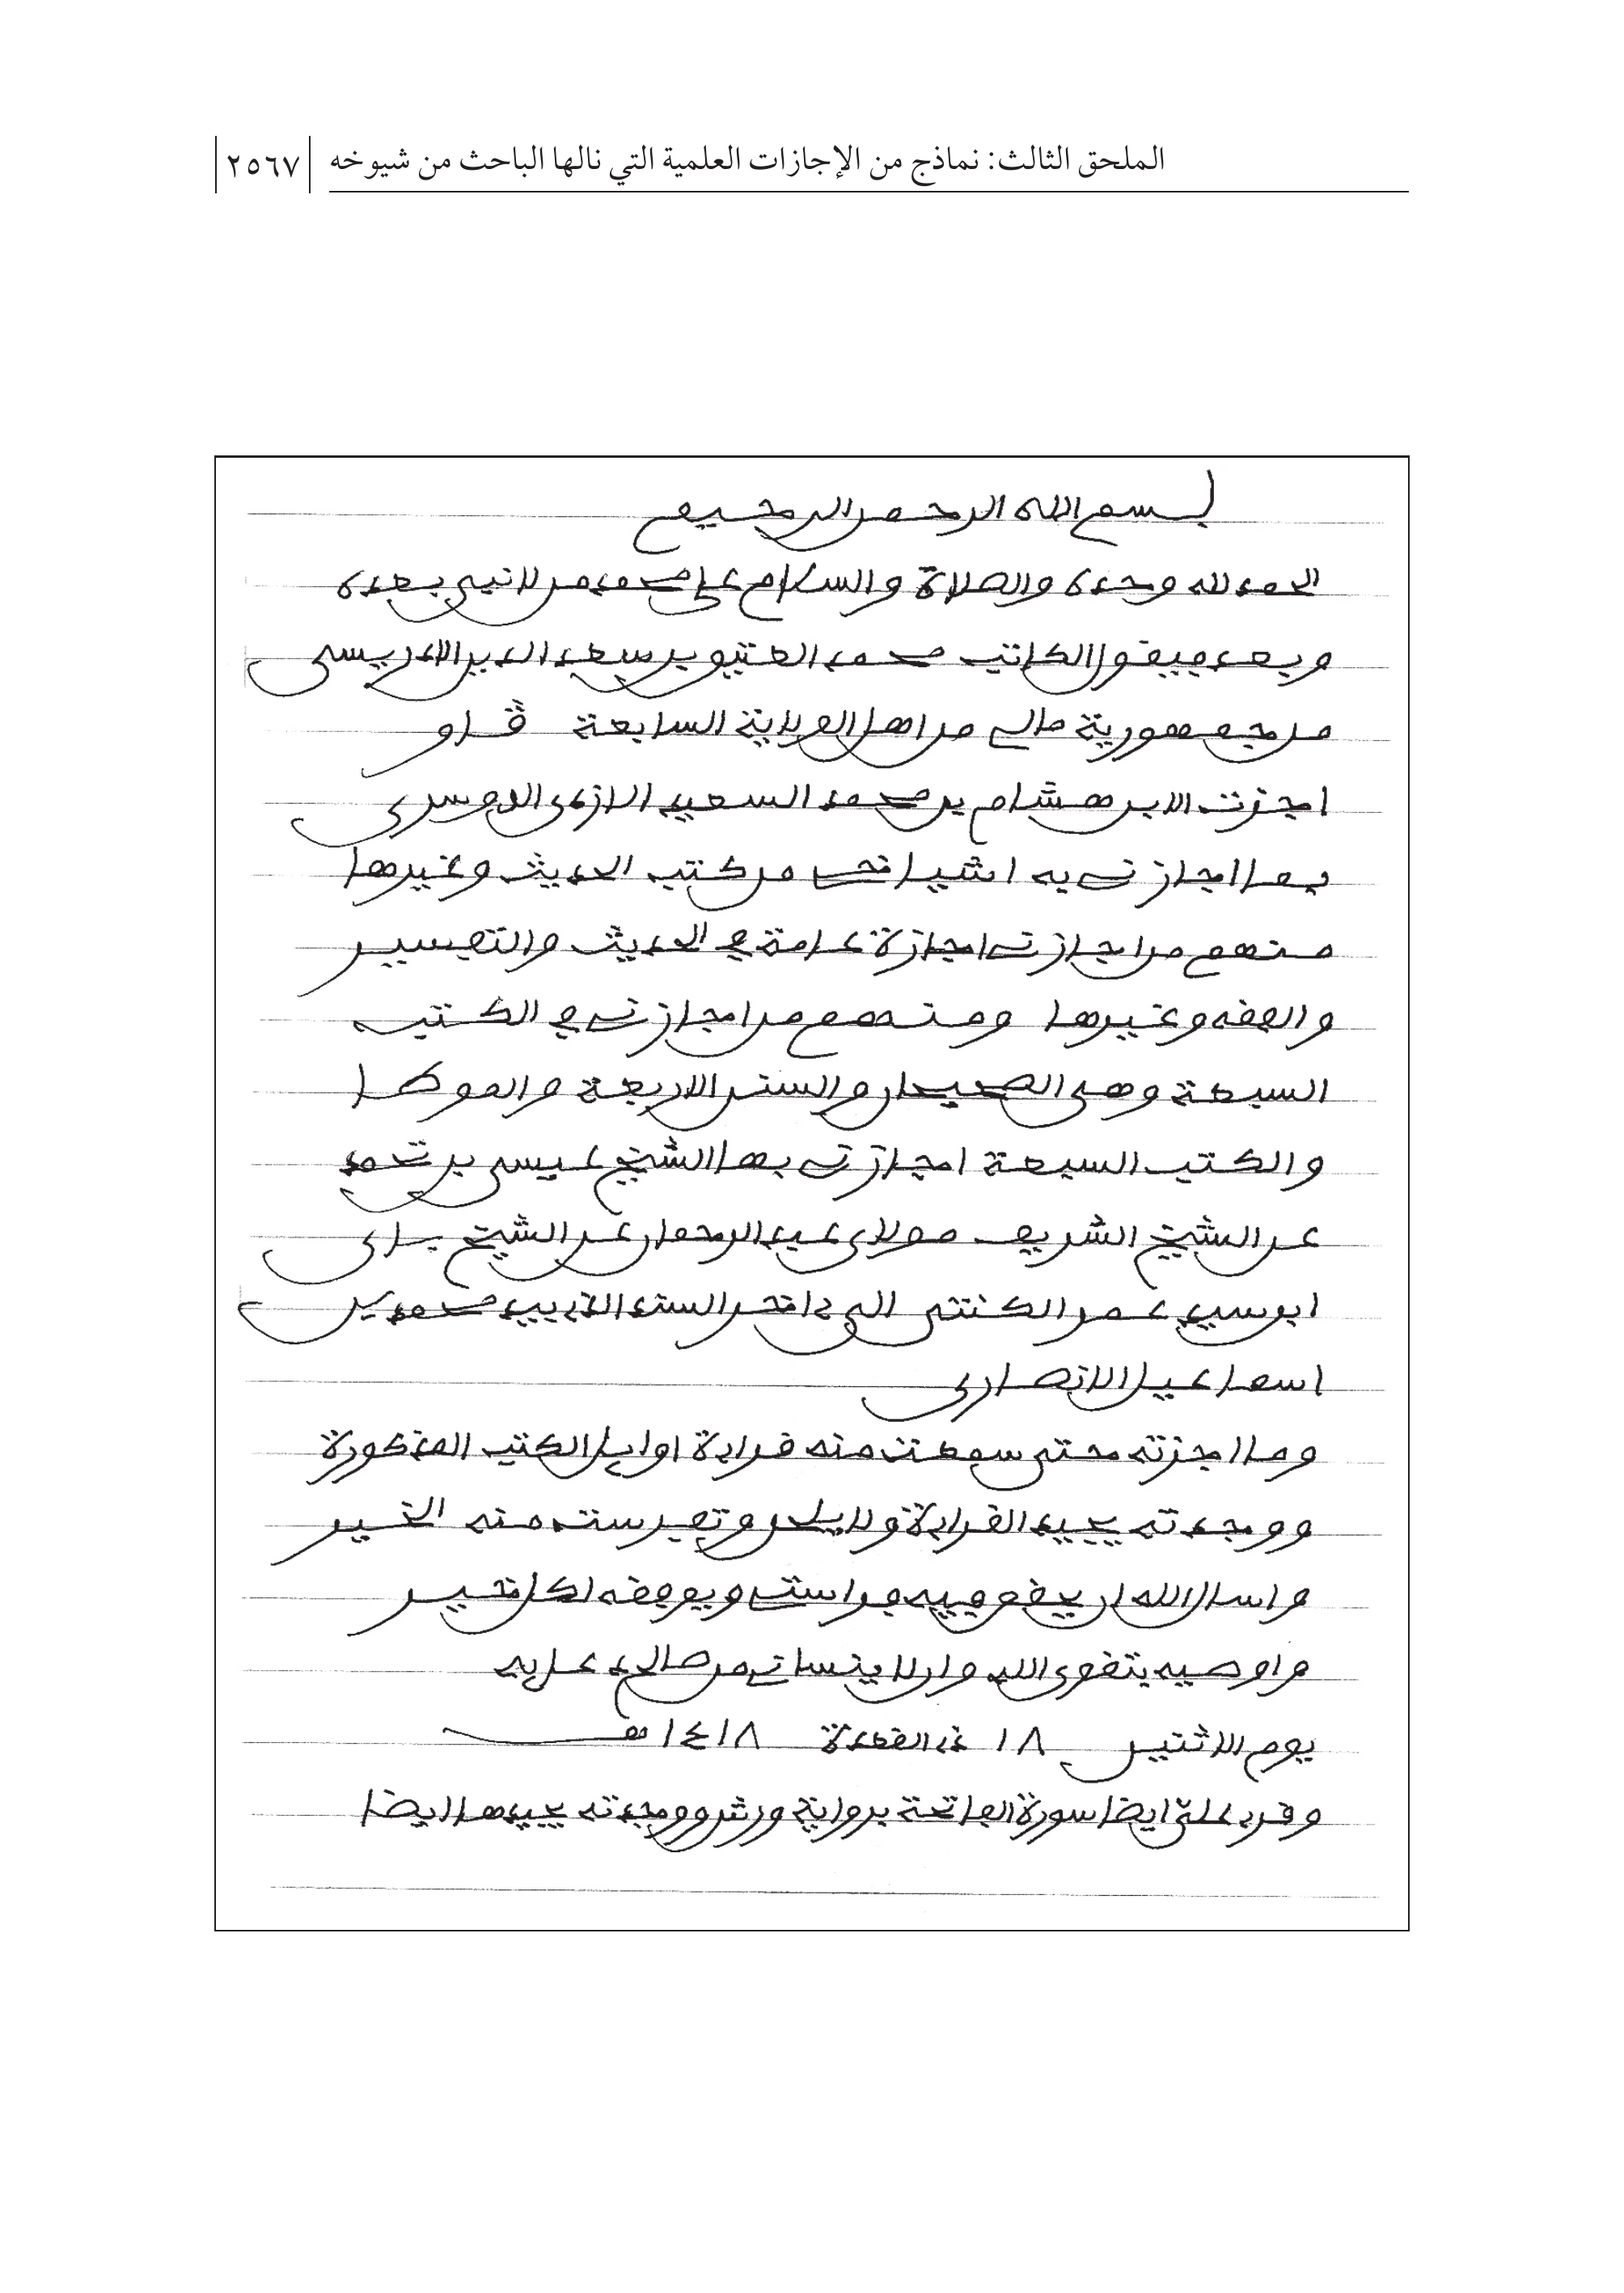 الملحق الثالث: نماذج من الإجازات العلمية التي نالها الباحث من شيوخه ٢٥٦٧
بسم الله الرحمن الرحيم
الحمد لله وحده والصلاة والسلام على محمد من لا نبي بعده
وبعد فيقول الكاتب محمد العتيق بن سعد الدين الادريسي
من جمهورية مالي من اهل الولاية السابعة ڤاو
اجزت لابن هشام بن محمد السعيد الازدي الدوسري
بما اجازني به اشياخي من كتب الحديث وغيرها
منهم من اجازني اجازة عامة في الحديث والتفسير
والفقه وغيرها ومنهم من اجازني في الكتب
السبعة وهي الصحيحان والسنن الاربعة والموطا
والكتب السبعة اجازني بها الشيخ عيسى بن تحمد
عن الشيخ الشريف مولاي عبد الرحمان عن الشيخ باي
ابن سيد عمر الكنتي الى داخر السند الاديب محمد بن
اسماعيل الانصاري
وما اجزته حتى سمعت منه قراءة اوايل الكتب المذكورة
ووجدته يجيد القراءة ولا يلحن وتفرست منه الخير
واسال الله ان يحقق فيه فراستي ويوفقه لكل خير
واوصيه بتقوى الله وان لا ينساني من صالح دعايه
يوم الاثنين ١٨ ذي القعدة ١٤١٨ هـ
وقرء علي ايضا سورة الفاتحة برواية ورش ووجدته يجيدها ايضا